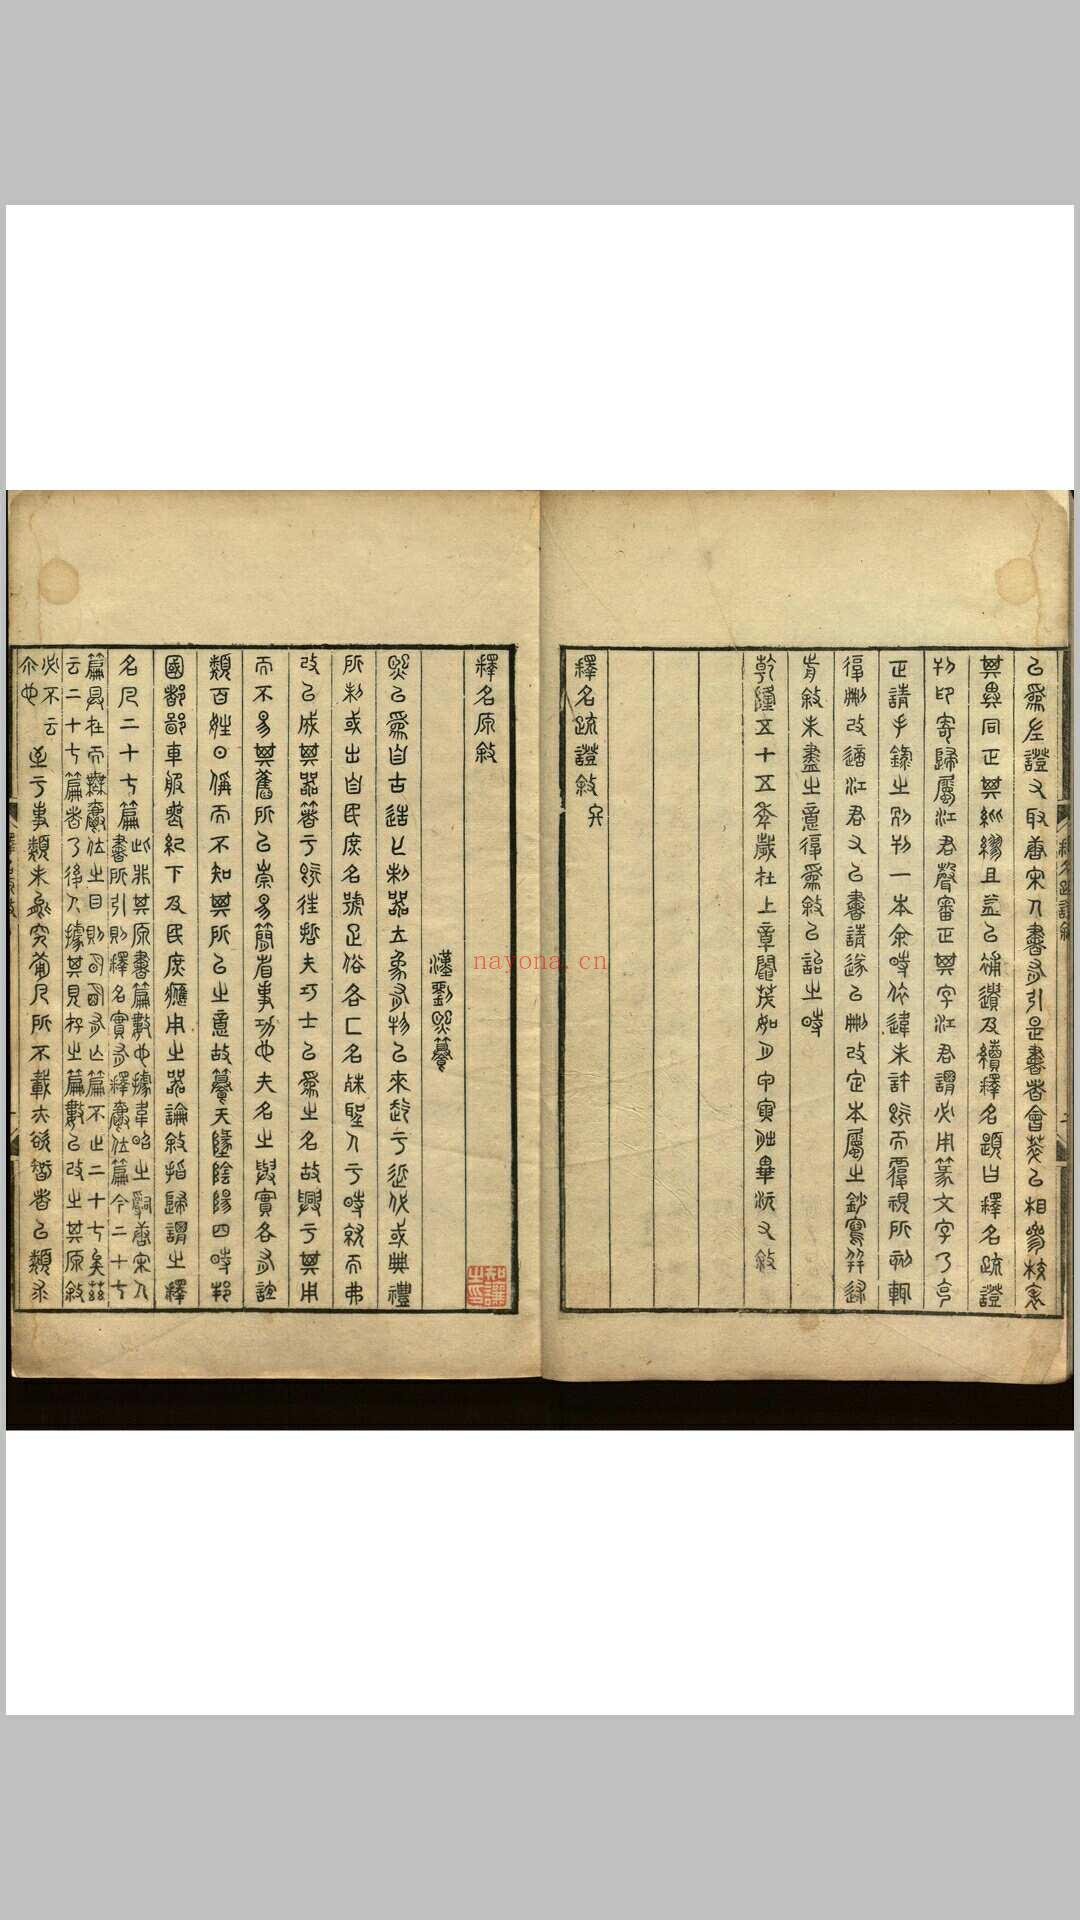 㠯爲左證又取唐宋人書有引是書者會萃㠯相參校表
其異同正其紕繆且益㠯補遺及續釋名題曰釋名疏證
刊印寄歸屬江君聲審正其字江君謂必用篆文字乃克
正請手錄之別刊一本余時依違未許既而覆視所刻輒
復刪改適江君又㠯書請遂㠯刪改定本屬之鈔寫幷述
前敘未盡之意復爲敘㠯詒之時
乾隆五十五年歲在上章閹茂如月中寅朏畢沅又敘
釋名疏證敘 終
釋名原敘
漢劉熙纂
熙㠯爲自古造化制器立象有物㠯來迄于近代或典禮
所制或出自民庶名號疋俗各匚名殊聖人于時就而弗
改㠯成其器著于既往哲夫巧士㠯爲之名故興于其用
而不易其舊所㠯崇易簡省事功也夫名之與實各有誼
類百姓日偁而不知其所㠯之意故纂天地陰陽四時邦
國都鄙車服喪紀下及民庶應用之器論敘指歸謂之釋
名凡二十七篇
此非其原書篇數也據韋昭之辭唐宋人
書所引則釋名實有釋爵位篇今二十七
篇具在而無爵位之目則固有亡篇不止二十七矣茲
云二十七篇者乃後人據其見存之篇數㠯改之其原敘
必不云
尒也
至于事類未能究備凡所不載亦欲智者㠯類求
nayona.cn